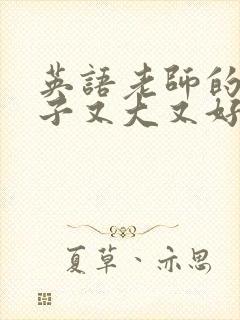 英語老師的
子又大又好
夏草、亦思